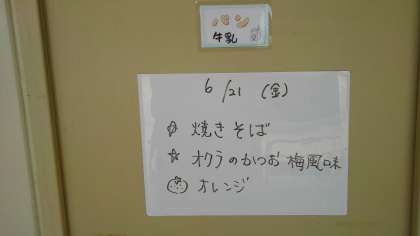 パン
牛乳
6/21 (金)
☆ 焼きそば
☆ オクラのかつお梅風味
オレンジ